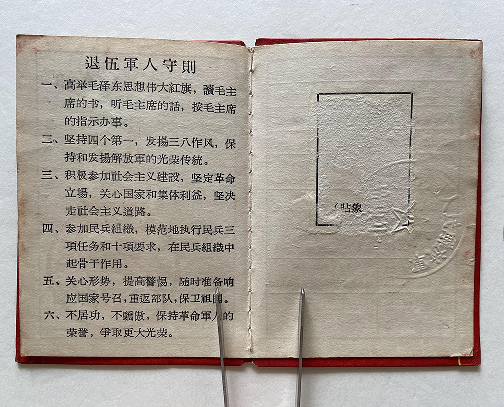 退伍軍人守則
一、高举毛泽东思想伟大紅旗，讀毛主
席的书，听毛主席的話，按毛主席
的指示办事。
二、坚持四个第一，发揚三八作风，保
持和发揚解放軍的光荣传統。
三、积极参加社会主义建設，坚定革命
立場，关心国家和集体利益，坚决
走社会主义道路。
四、参加民兵組織，模范地执行民兵三
項任务和十項要求，在民兵組織中
起骨干作用。
五、关心形势，提高警惕，随时准备响
应国家号召，重返部队，保卫祖国。
六、不居功，不驕傲，保持革命軍人的
荣誉，爭取更大光荣。